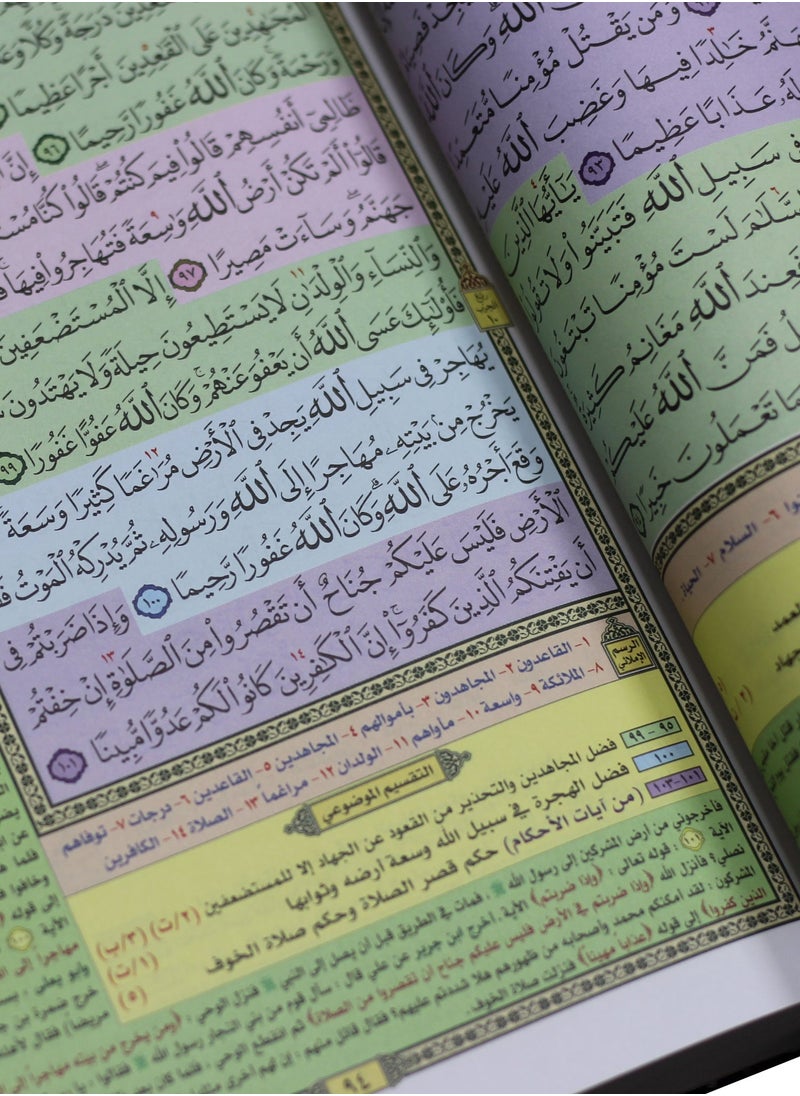 وَمَن يَقْتُلْ مُؤْمِنًا مُّتَعَمِّدًا
خَٰلِدًا فِيهَا وَغَضِبَ ٱللَّهُ
عَذَابًا عَظِيمًا ٩٣ يَٰٓأَيُّهَا ٱلَّذِينَ
سَبِيلِ ٱللَّهِ فَتَبَيَّنُوا۟ وَلَا
لَسْتَ مُؤْمِنًا
ٱللَّهِ مَغَانِمُ
فَمَنَّ ٱللَّهُ
تَعْمَلُونَ خَبِيرًا
٦- السلام ٧- الحياة
دَرَجَةً وَكُلًّا
عَلَى ٱلْقَٰعِدِينَ أَجْرًا عَظِيمًا
وَرَحْمَةً وَكَانَ ٱللَّهُ غَفُورًا رَّحِيمًا ٩٦ إِنَّ
ظَالِمِىٓ أَنفُسِهِمْ قَالُوا۟ فِيمَ كُنتُمْ قَالُوا۟ كُنَّا
قَالُوٓا۟ أَلَمْ تَكُنْ أَرْضُ ٱللَّهِ وَٰسِعَةً فَتُهَاجِرُوا۟ فِيهَا
جَهَنَّمُ وَسَآءَتْ مَصِيرًا ٩٧ إِلَّا ٱلْمُسْتَضْعَفِينَ
وَٱلنِّسَآءِ وَٱلْوِلْدَٰنِ لَا يَسْتَطِيعُونَ حِيلَةً وَلَا يَهْتَدُونَ
فَأُو۟لَٰٓئِكَ عَسَى ٱللَّهُ أَن يَعْفُوَ عَنْهُمْ وَكَانَ ٱللَّهُ عَفُوًّا غَفُورًا ٩٩
يُهَاجِرْ فِى سَبِيلِ ٱللَّهِ يَجِدْ فِى ٱلْأَرْضِ مُرَٰغَمًا كَثِيرًا وَسَعَةً
يَخْرُجْ مِنۢ بَيْتِهِۦ مُهَاجِرًا إِلَى ٱللَّهِ وَرَسُولِهِۦ ثُمَّ يُدْرِكْهُ ٱلْمَوْتُ
وَقَعَ أَجْرُهُۥ عَلَى ٱللَّهِ وَكَانَ ٱللَّهُ غَفُورًا رَّحِيمًا ١٠٠ وَإِذَا ضَرَبْتُمْ فِى
ٱلْأَرْضِ فَلَيْسَ عَلَيْكُمْ جُنَاحٌ أَن تَقْصُرُوا۟ مِنَ ٱلصَّلَوٰةِ إِنْ خِفْتُمْ
أَن يَفْتِنَكُمُ ٱلَّذِينَ كَفَرُوٓا۟ إِنَّ ٱلْكَٰفِرِينَ كَانُوا۟ لَكُمْ عَدُوًّا مُّبِينًا ١٠١
ربع
الحزب
١٠
الرسم
الإملائي
١- القاعدون ٢- المجاهدون ٣- بأموالهم ٤- المجاهدين ٥- القاعدين ٦- درجات ٧- توفاهم
٨- الملائكة ٩- واسعة ١٠- مأواهم ١١- الولدان ١٢- مراغماً ١٣- الصلاة ١٤- الكافرين
التقسيم الموضوعي
٩٥ - ٩٩ فضل المجاهدين والتحذير من القعود عن الجهاد إلا للمستضعفين (٢/ت) (٣/ب)
١٠٠ فضل الهجرة في سبيل الله وسعة أرضه وثوابها (١/ت)
١٠١-١٠٣ (من آيات الأحكام) حكم قصر الصلاة وحكم صلاة الخوف (٥)
فأخرجوني من أرض المشركين إلى رسول الله ﷺ، فمات في الطريق قبل أن يصل إلى النبي ﷺ فنزل الوحي: (ومن يخرج من بيته مهاجراً إلى
الآية ١٠١: قوله تعالى: (وإذا ضربتم) الآية. أخرج ابن جرير عن علي قال: سأل قوم من بني النجار رسول الله ﷺ فقالوا:
نصلي؟ فأنزل الله (وإذا ضربتم في الأرض فليس عليكم جناح أن تقصروا من الصلاة) ثم انقطع الوحي، فلما كان بعد
المشركون: لقد أمكنكم محمد وأصحابه من ظهورهم هلا شددتم عليهم؟ فقال قائل منهم: إن لهم أخرى
الذين كفروا) إلى قوله (عذابا مهينا) فنزلت صلاة الخوف.
٩٤